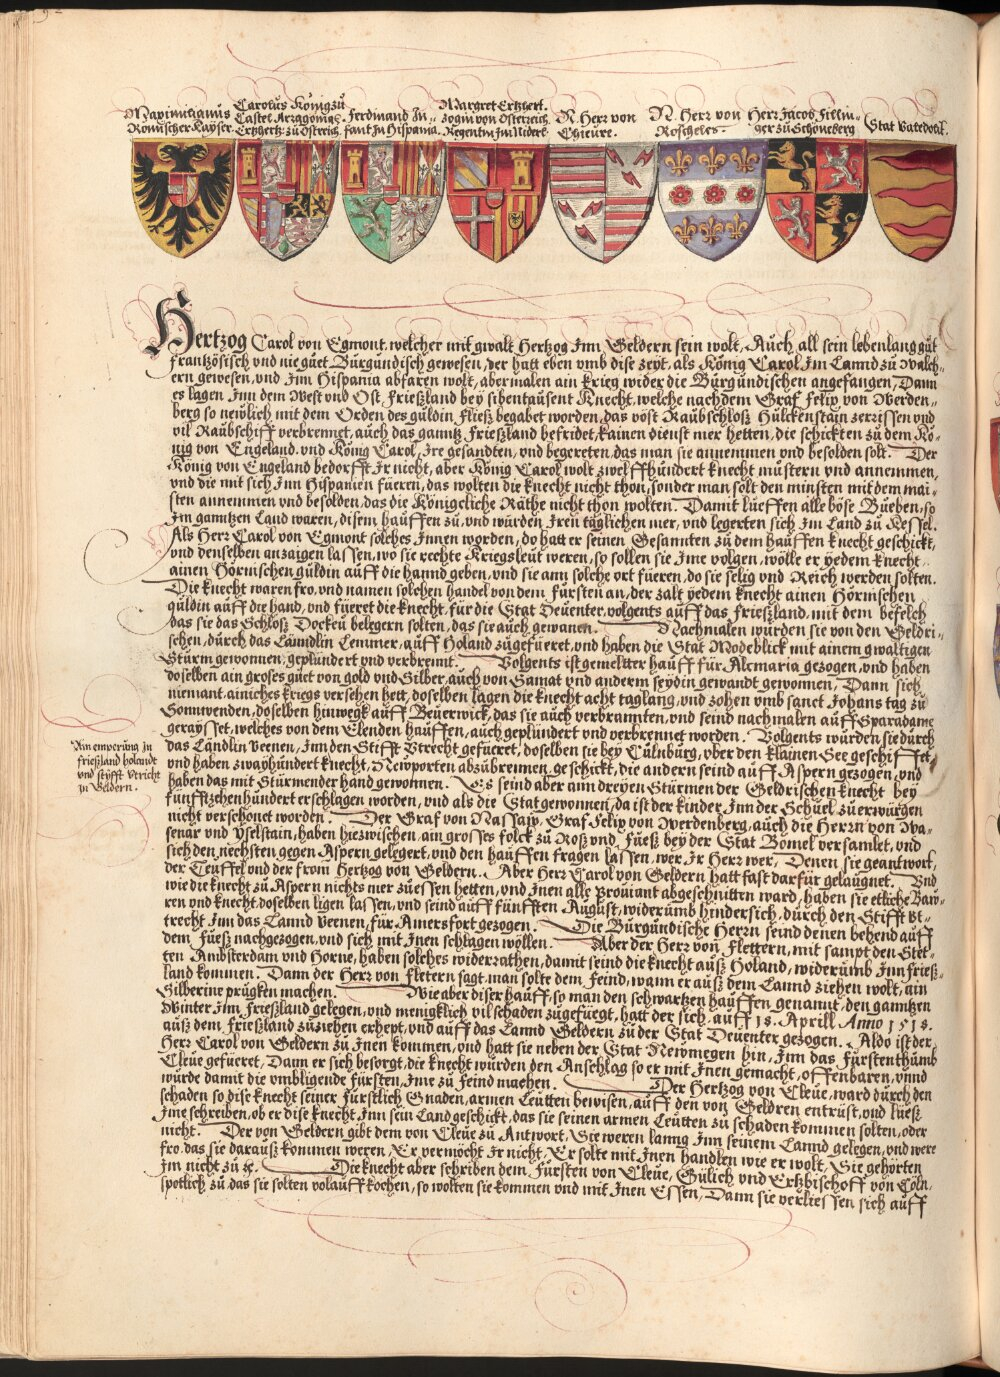 Maximilianus
Römischer Kayser.
Carolus König zu
Castel Arragonia.
Ertzhertz: zu Österreich.
Ferdinand In-
fant In Hispania.
Margret Ertzhert-
zogin von Österreich
Regentin Im Niderl:
N. Herr von
Chieure.
N. Herr von
Roscheles.
Herr Jacob Fillin-
ger zu Schöneberg
Stat Valedolit.
Hertzog Carol von Egmont, welcher mit gwalt Hertzog Inn Geldern sein wolt, Auch all sein lebenlang gut
frantzösisch vnd nie guet Burgundisch gewesen, der hatt eben vmb dise zeyt, als König Carol Im Lannd zu Walch-
ern gewesen, vnd Inn Hispania abfaren wolt, abermalen ain krieg wider die Burgundischen angefangen, Dann
es lagen Inn dem West vnd Ost frießland bey sibentausent Knecht, welche nachdem Graf felix von Werden-
berg so neulich mit dem Orden des guldin fließ begabet worden, das vöst Raubschloß Hulckenstain zerrissen vnd
vil Raubschiff verbrennet, auch das ganntz frießland befridet, kainen dienst mer hetten, die schickten zu dem Kö-
nig von Engeland vnd König Carol, Ire gesandten, vnd begereten, das man sie annemmen vnd besolden solt. Der
König von Engeland bedorfft Ir nicht, aber König Carol wolt zwelffhundert knecht mustern vnd annemmen,
vnd die mit sich Inn Hispanien füeren, das wolten die knecht nicht thon, sonder man solt den minsten mit dem mai-
sten annemmen vnd besolden, das die Königeliche Räthe nicht thon wolten. Damit lueffen alle böse Bueben, so
Im ganntzen Land waren, disem hauffen zu, vnd wurden Iren täglichen mer, vnd legerten sich Im Land zu Kessel.
Als Herr Carol von Egmont solches Innen worden, do hatt er seinen Gesannten zu dem hauffen knecht geschickt,
vnd denselben anzaigen lassen, wo sie rechte Kriegsleut weren, so sollen sie Ime volgen, wölle er yedem knecht
ainen Hörnischen guldin auff die hannd geben, vnd sie ann solche ort füeren, do sie selig vnd Reich werden solten.
Die knecht waren fro, vnd namen solchen handel von dem fürsten an, der zalt yedem knecht ainen Hörnischen
guldin auff die hand, vnd füeret die knecht, für die Stat Deuenter, volgents auff das frießland, mit dem befelch
das sie das Schloß Dockeu belegern solten, das sie auch gewanen. Nachmalen wurden sie von den Geldri-
schen, durch das Länndlin Lemmer, auff Holand zugefüeret, vnd haben die Stat Modeblick mit ainem gwaltigen
Sturm gewonnen, geplundert vnd verbrennt. Volgents ist gemelter hauff für Alcmaria gezogen, vnd haben
doselben ain groses guet von gold vnd Silber, auch von Samat vnd anderm seydin gewandt gewonnen, Dann sich
niemant, ainiches kriegs versehen hett, doselben lagen die knecht acht tag lang, vnd zohen vmb sanct Johans tag zu
Sonnwenden, doselben hinwegk auff Beuerwick, das sie auch verbrannten, vnd seind nachmalen auff Sparadame
geraysset, welches von dem Elenden hauffen, auch geplundert vnd verbrennet worden. Volgents wurden sie durch
das Ländlin Veenen, Inn den Stifft Vtrecht gefueret, doselben sie bey Culnburg, vber den klainen See geschiffet,
vnd haben zwayhundert knecht, Newporten abzubrennen, geschickt, die andern seind auff Aspern gezogen, vnd
haben das mit Stürmender hand gewonnen. Es seind aber ann dreyen Stürmen der Geldrischen knecht bey
funfftzehenhundert erschlagen worden, vnd als die Stat gewonnen, da ist der kinder Inn der Schuel zu erwurgen
nicht verschonet worden. Der Graf von Nassaw, Graf Felix von Werdenberg, auch die Herrn von Wa-
senar vnd Yselstain, haben hiezwischen, ain grosses folck zu Roß vnd Fueß bey der Stat Bomel versamlet, vnd
sich den nechsten gegen Aspern gelegert, vnd den hauffen fragen lassen, wer Ir Herr wer, Denen sie geantwort,
der Teuffel vnd der from Hertzog von Geldern. Aber Herr Carol von Geldern hatt fast darfür gelaugnet. Vnd
wie die knecht zu Aspern nichts mer zu essen hetten, vnd Inen alle Prouiant abgeschnitten ward, haben sie etliche Baw-
ren vnd knecht, doselben ligen lassen, vnd seind auff funfften August, widerumb hindersich, durch den Stifft Vt-
trecht Inn das Lannd Veenen, für Amersfort gezogen. Die Burgundische Herrn seind denen behend auff
dem Fueß nachgezogen, vnd sich mit Inen schlagen wöllen. Aber der Herr von Flettern, mit sampt den Stet-
ten Ambsterdam vnd Horne, haben solches widerrathen, damit seind die knecht auß Holand, widerumb Inn frieß-
land kommen. Dann der Herr von fletern sagt, man solte dem feind, wann er auß dem Lannd ziehen wolt, ain
Silberine prugken machen. Wie aber diser hauff, so man den schwartzen hauffen genannt, den ganntzen
Winter Im frießland gelegen, vnd menigklich vil schaden zugefuegt, hatt der sich, auff 18. Aprill Anno 1518.
auß dem frießland zuziehen erhept, vnd auff das Lannd Geldern zu der Stat Deuenter gezogen. Aldo ist der
Herr Carol von Geldern zu Inen kommen, vnd hatt sie neben der Stat Newmegen hin, Inn das Fürstenthumb
Cleue gefueret, Dann er sich besorgt, die knecht wurden den Anschlag so er mit Inen gemacht, offenbaren, vnnd
würde damit die vmbligende fursten, Ime zu feind machen. Der Hertzog von Cleue, ward durch den
schaden so dise knecht seiner fürstlich Gnaden, armen Leutten bewisen, auff den von Geldren entrust, vnd lueß
Ime schreiben, ob er dise knecht Inn sein Land geschickt, das sie seinen armen Leutten zu schaden kommen solten, oder
nicht. Der von Geldern gibt dem von Cleue zu Antwort, Sie weren lanng Inn seinem Lannd gelegen, vnd were
fro, das sie darauß kommen weren, Er vermöcht Ir nicht, Er solte mit Inen handlen wie er wolt, Sie gehörten
Im nicht zu ꝛc. Die knecht aber schriben dem Fürsten von Cleue, Gülich vnd Ertzbischoff von Cöln,
spotlich zu, das sie solten volauff kochen, so wolten sie kommen vnd mit Inen Essen, Dann sie verliessen sich auff
Ain emperung zu
frießland holandt
vnd styfft Vtricht
In Geldern.